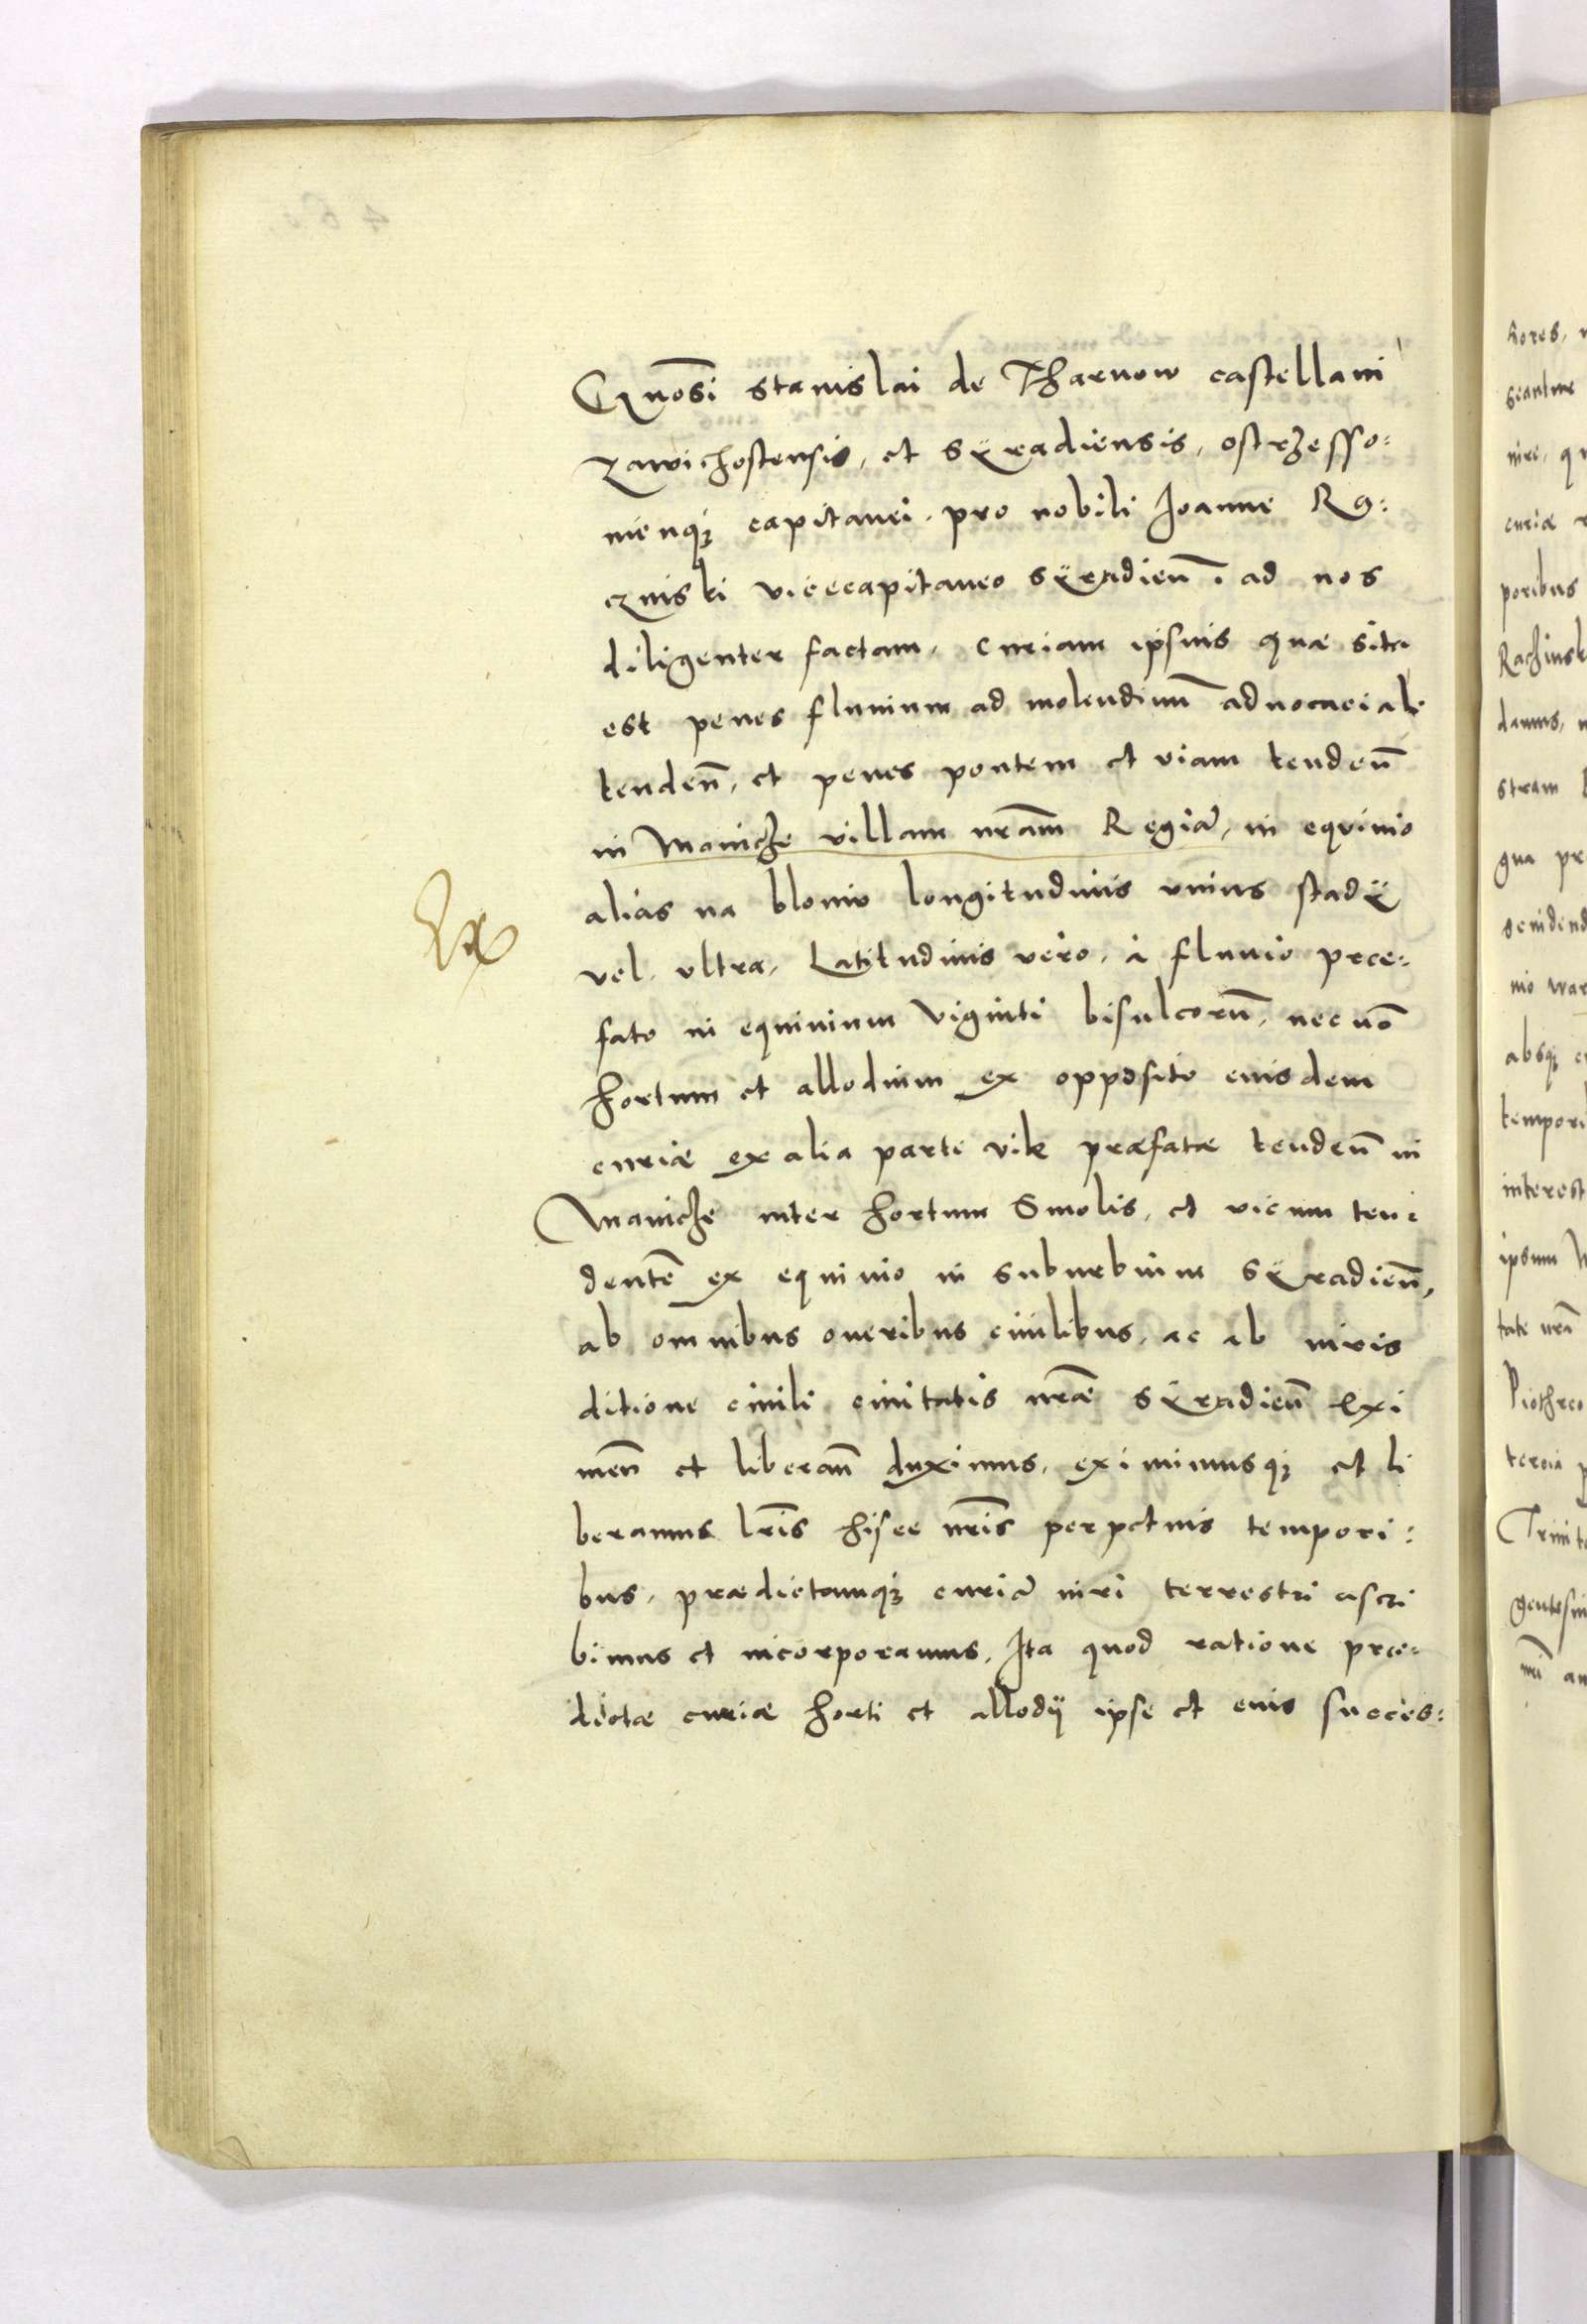 Gnosi stanislai de Tharnow castellani
zawichostensis, et syradiensis, ostrzesso:
mienqz capitanei, pro nobili Joanne Ra:
czinski vicecapitaneo syradien̄. ad nos
diligenter factam, Curiam ipsius quæ sita
est penes fluuium ad molendinū aduocacialē
tendeñ, et penes pontem et viam tendeñ
in Maniche villam nrām Regiā, in equirio
alias na bloniv longitudinis vnius stadÿ
vel vltra, Latitudinis vero, a fluuio præ:
fato in equirium viginti bisulcorū, necnō
hortum et allodium ex opposito eiusdem
curiæ ex alia parte viæ præfatæ tendeñ in
Maniche inter hortum Smolis, et vicum ten:
dentē ex equirio in suburbium Syradieñ,
ab omnibus oneribus ciuilibus, ac ab iuris
ditione ciuili ciuitatis nræ Syradieñ exi
meñ et liberañ duximus, eximimusqz et li
beramus lrīs hisce nrīs perpetuis tempori:
bus, prædictamqz curiā iuri terrestri ascri
bimus et incorporamus, Ita quod ratione præ:
dictæ curiæ horti et allodij ipse et eius succes:
Ex
hores,
nire,
curiæ
poribus
Rachinsk
damus,
stram
gua pr
absqz
tempori
interest
ipsum
tate nrā
Piothrco
tercia
Trinita
gentesim